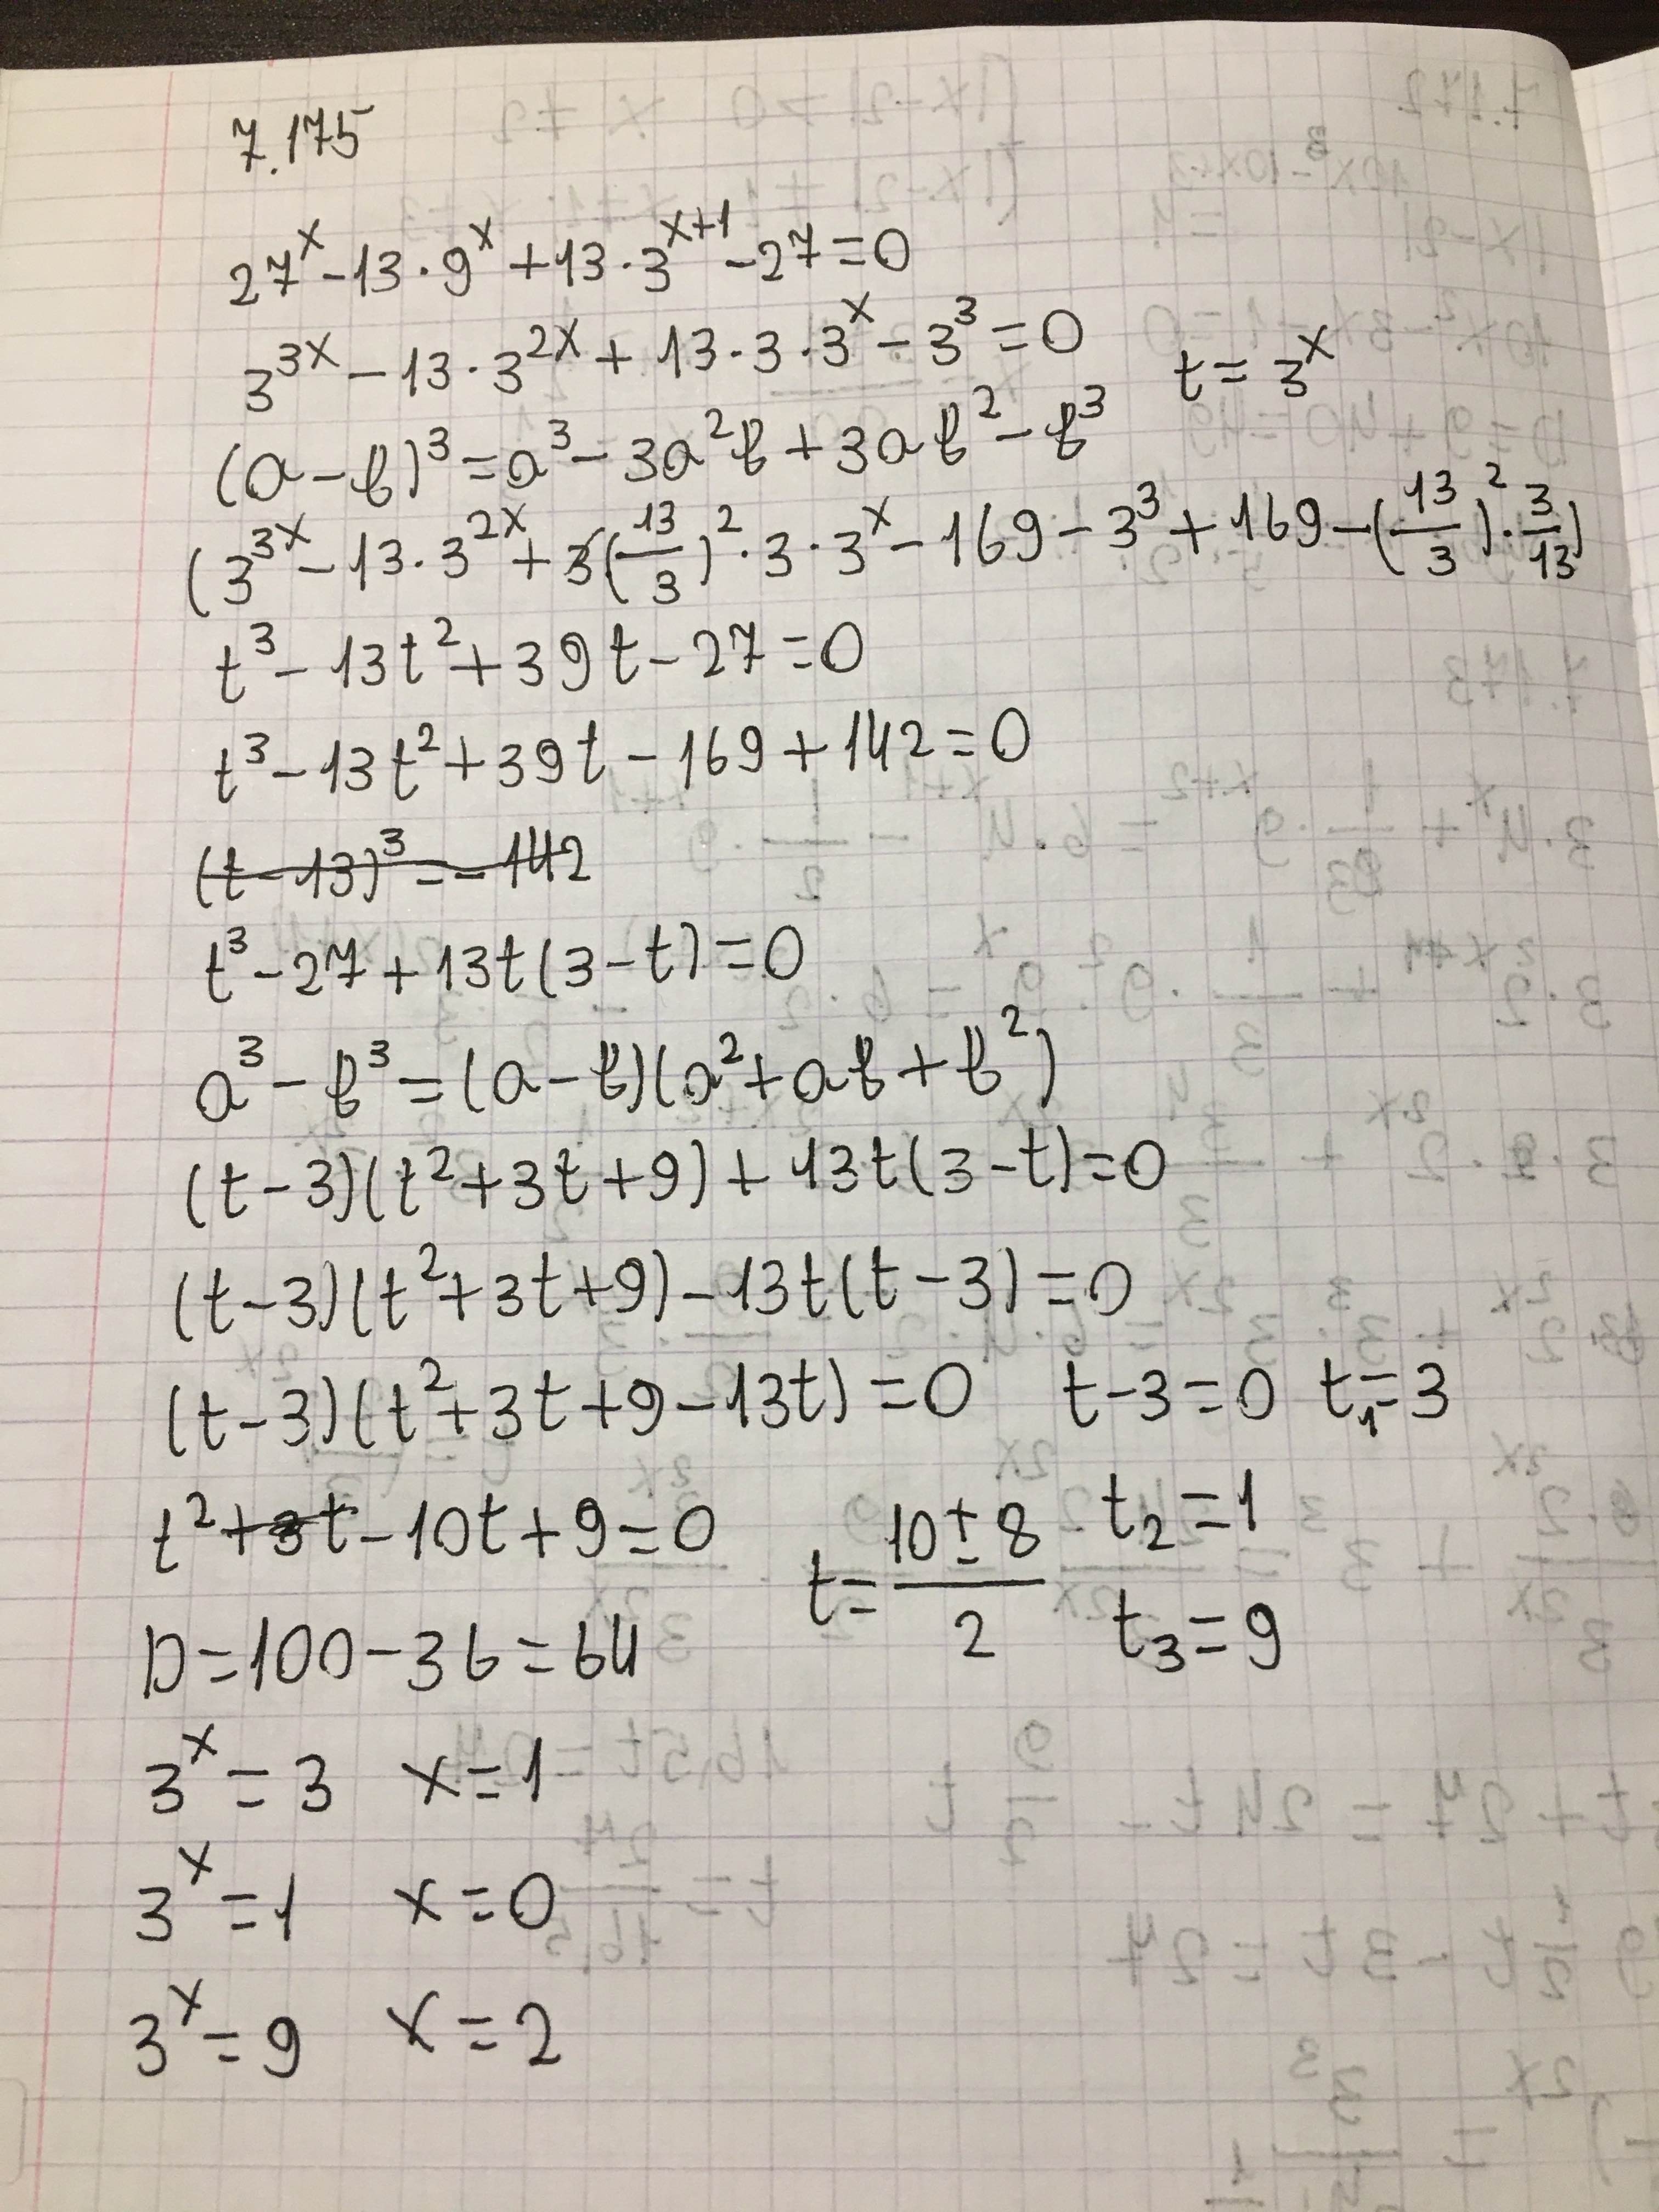 7.175
27^x - 13 · 9^x + 13 · 3^(x+1) - 27 = 0
3^(3x) - 13 · 3^(2x) + 13 · 3 · 3^x - 3^3 = 0    t = 3^x
(a - b)^3 = a^3 - 3a^2b + 3ab^2 - b^3
(3^(3x) - 13 · 3^(2x) + 3(13/3)^2 · 3 · 3^x - 169 - 3^3 + 169 - (13/3)^2 · 3/13)
t^3 - 13t^2 + 39t - 27 = 0
t^3 - 13t^2 + 39t - 169 + 142 = 0
(t - 13)^3 = - 142
t^3 - 27 + 13t(3 - t) = 0
a^3 - b^3 = (a - b)(a^2 + ab + b^2)
(t - 3)(t^2 + 3t + 9) + 13t(3 - t) = 0
(t - 3)(t^2 + 3t + 9) - 13t(t - 3) = 0
(t - 3)(t^2 + 3t + 9 - 13t) = 0    t - 3 = 0    t₁ = 3
t^2 + 3t - 10t + 9 = 0    t = (10 ± 8)/2    t₂ = 1
t₃ = 9
D = 100 - 36 = 64
3^x = 3    x = 1
3^x = 1    x = 0
3^x = 9    x = 2